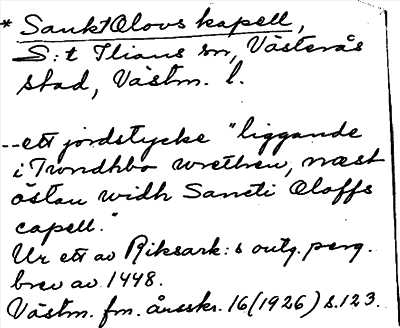 * Sankt Olovs kapell,
S:t Ilians sn, Västerås
stad, Västm. l.
--ett jordstycke "liggande
i Trondhbo wrethen, næst
östan widh Sancti Oloffs
capell."
Ur ett av Riksark:s outg. perg.
brev av 1448.
Västm. fm. årsskr. 16 (1926) s. 123.